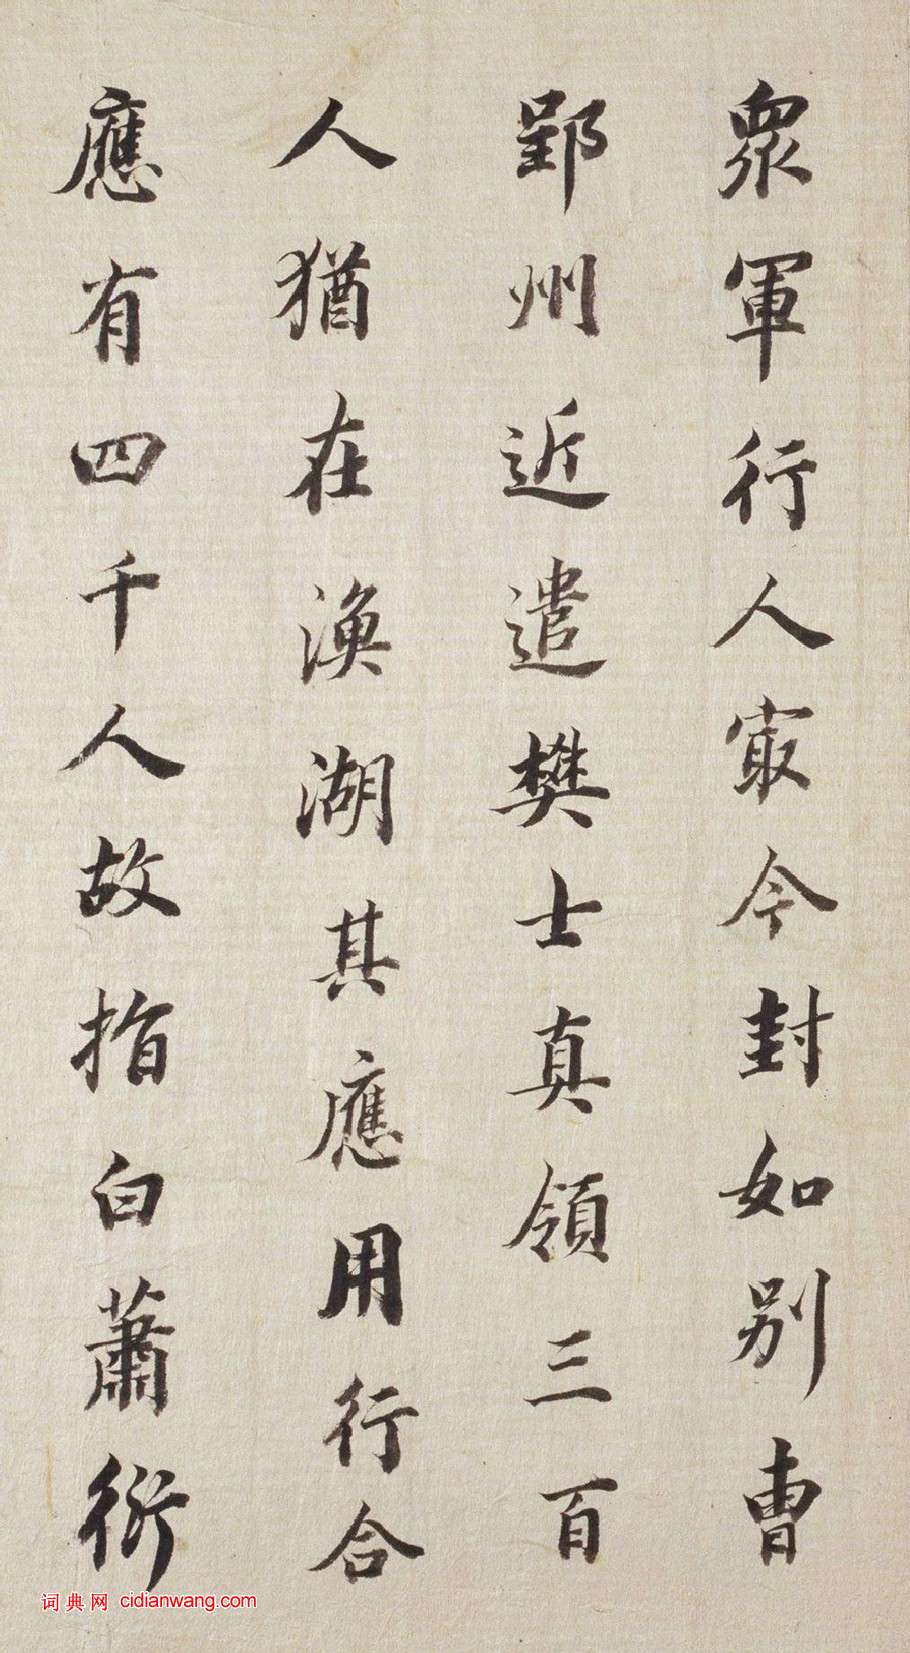 眾軍行人寂今封如別曹
郢州近遣樊士真領三百
人猶在渙湖其應用行合
應有四千人故指白蕭衍
词典网 cidianwang.com